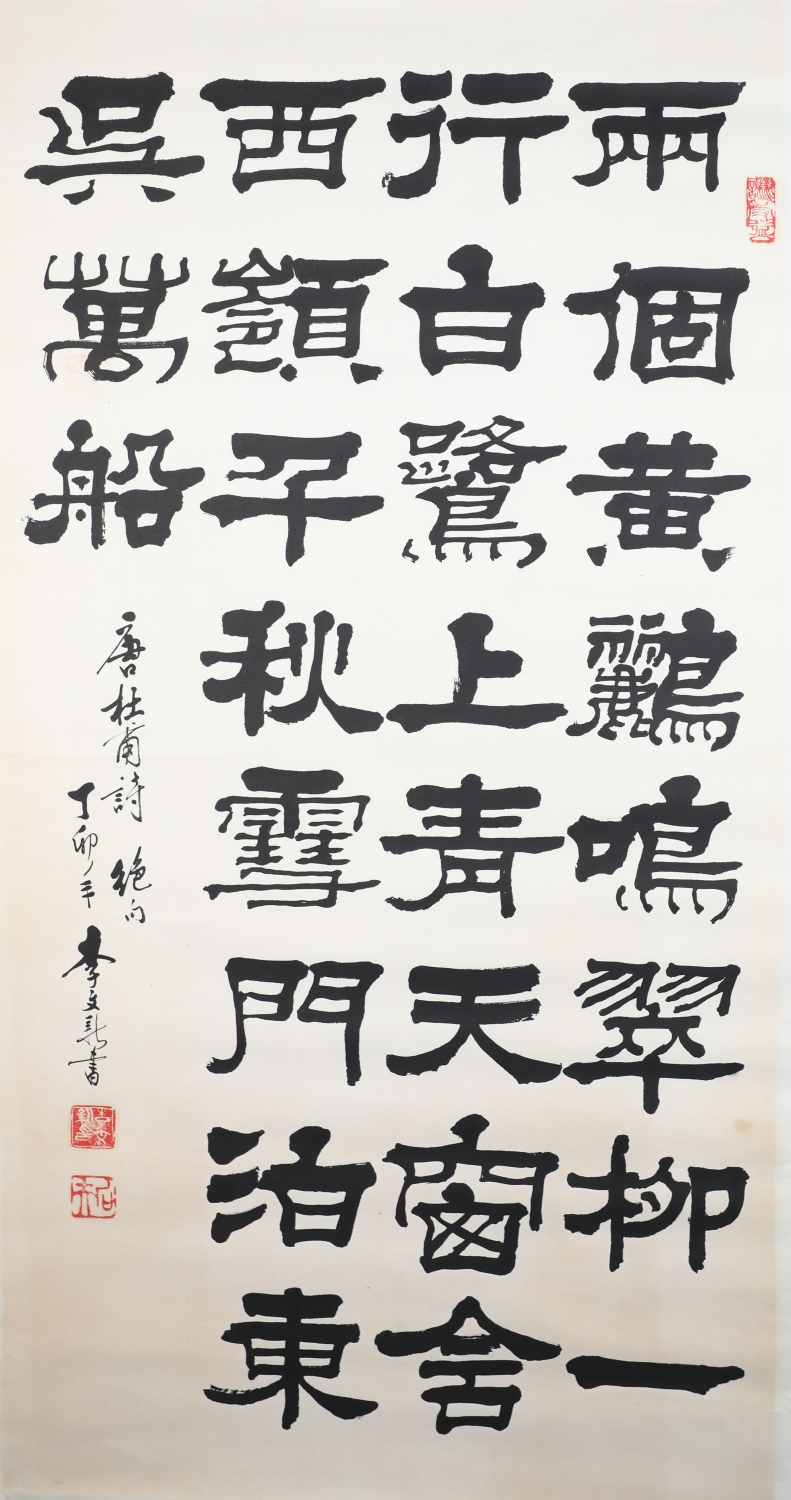 兩個黃鸝鳴翠柳一
行白鷺上青天窗含
西嶺千秋雪門泊東
吳萬船
唐杜甫詩 絶句
丁卯年李文新書